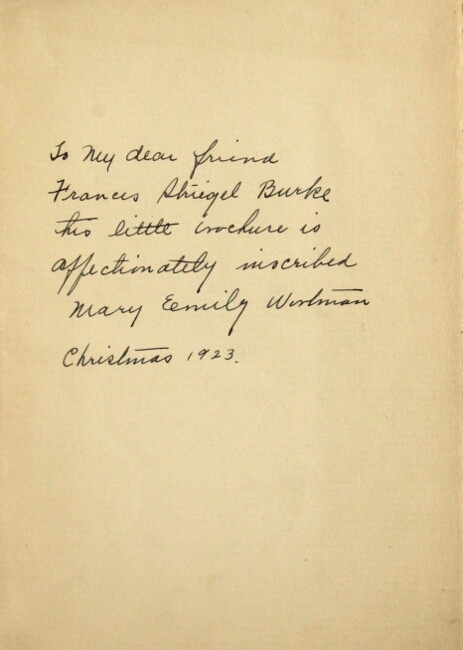 To My dear friend
Frances Striegel Burke
this little brochure is
affectionately inscribed
Mary Eemily Wortman
Christmas 1923.